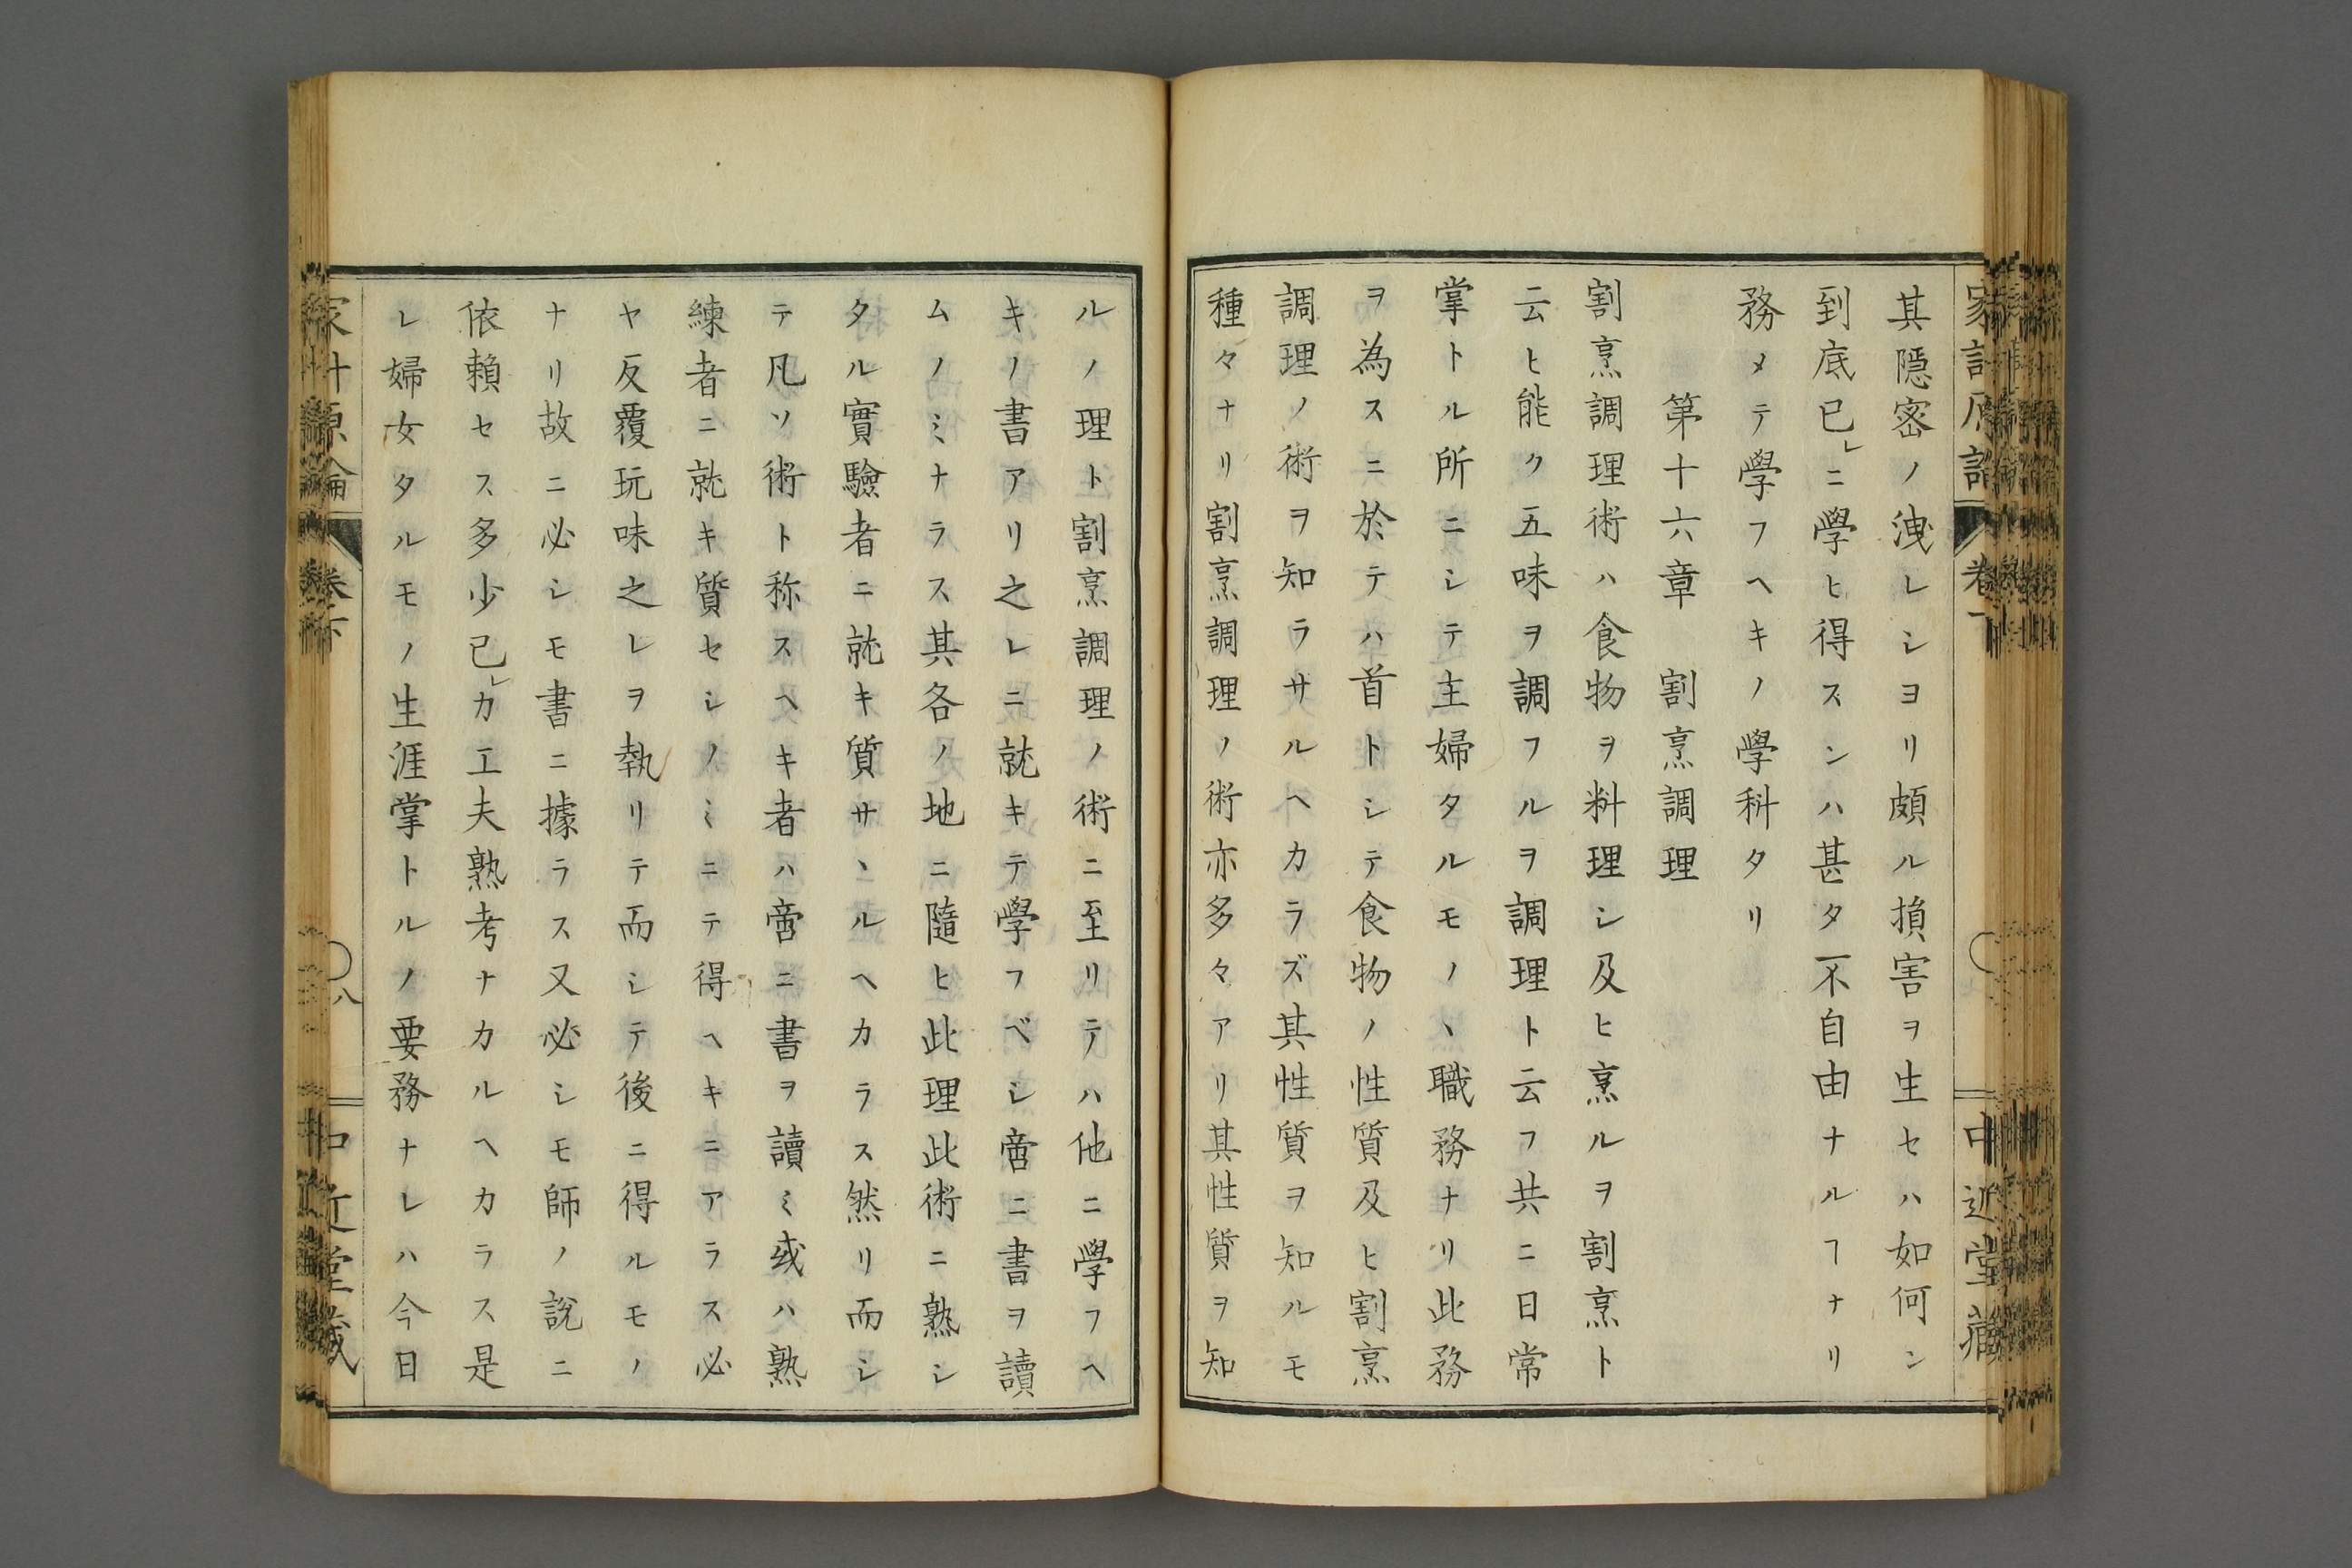 其隱密ノ洩レシヨリ頗ル損害ヲ生セハ如何ン
到底已レニ學ヒ得ズンハ甚タ不自由ナルヿナリ
務メテ學フヘキノ學科タリ
第十六章 割烹調理
割烹調理術ハ食物ヲ料理シ及ヒ烹ルヲ割烹ト
云ヒ能ク五味ヲ調フルヲ調理ト云フ共ニ日常
掌トル所ニシテ主婦タルモノヽ職務ナリ此務
ヲ為スニ於テハ首トシテ食物ノ性質及ヒ割烹
調理ノ術ヲ知ラサルヘカラズ其性質ヲ知ルモ
種々ナリ割烹調理ノ術亦多々アリ其性質ヲ知
中近堂藏
ルノ理ト割烹調理ノ術ニ至リテハ他ニ學フヘ
キノ書アリ之レニ就キテ學フベシ啻ニ書ヲ讀
ムノミナラス其各ノ地ニ隨ヒ此理此術ニ熟シ
タル實驗者ニ就キ質サヽルヘカラス然リ而シ
テ凡ソ術ト称スヘキ者ハ啻ニ書ヲ讀ミ或ハ熟
練者ニ就キ質セシノミニテ得ヘキニアラス必
ヤ反覆玩味之レヲ執リテ而シテ後ニ得ルモノ
ナリ故ニ必シモ書ニ據ラス又必シモ師ノ說ニ
依賴セス多少已レカ工夫熟考ナカルヘカラス是
レ婦女タルモノノ生涯掌トルノ要務ナレハ今日
家計原論 卷下 八 中近堂藏